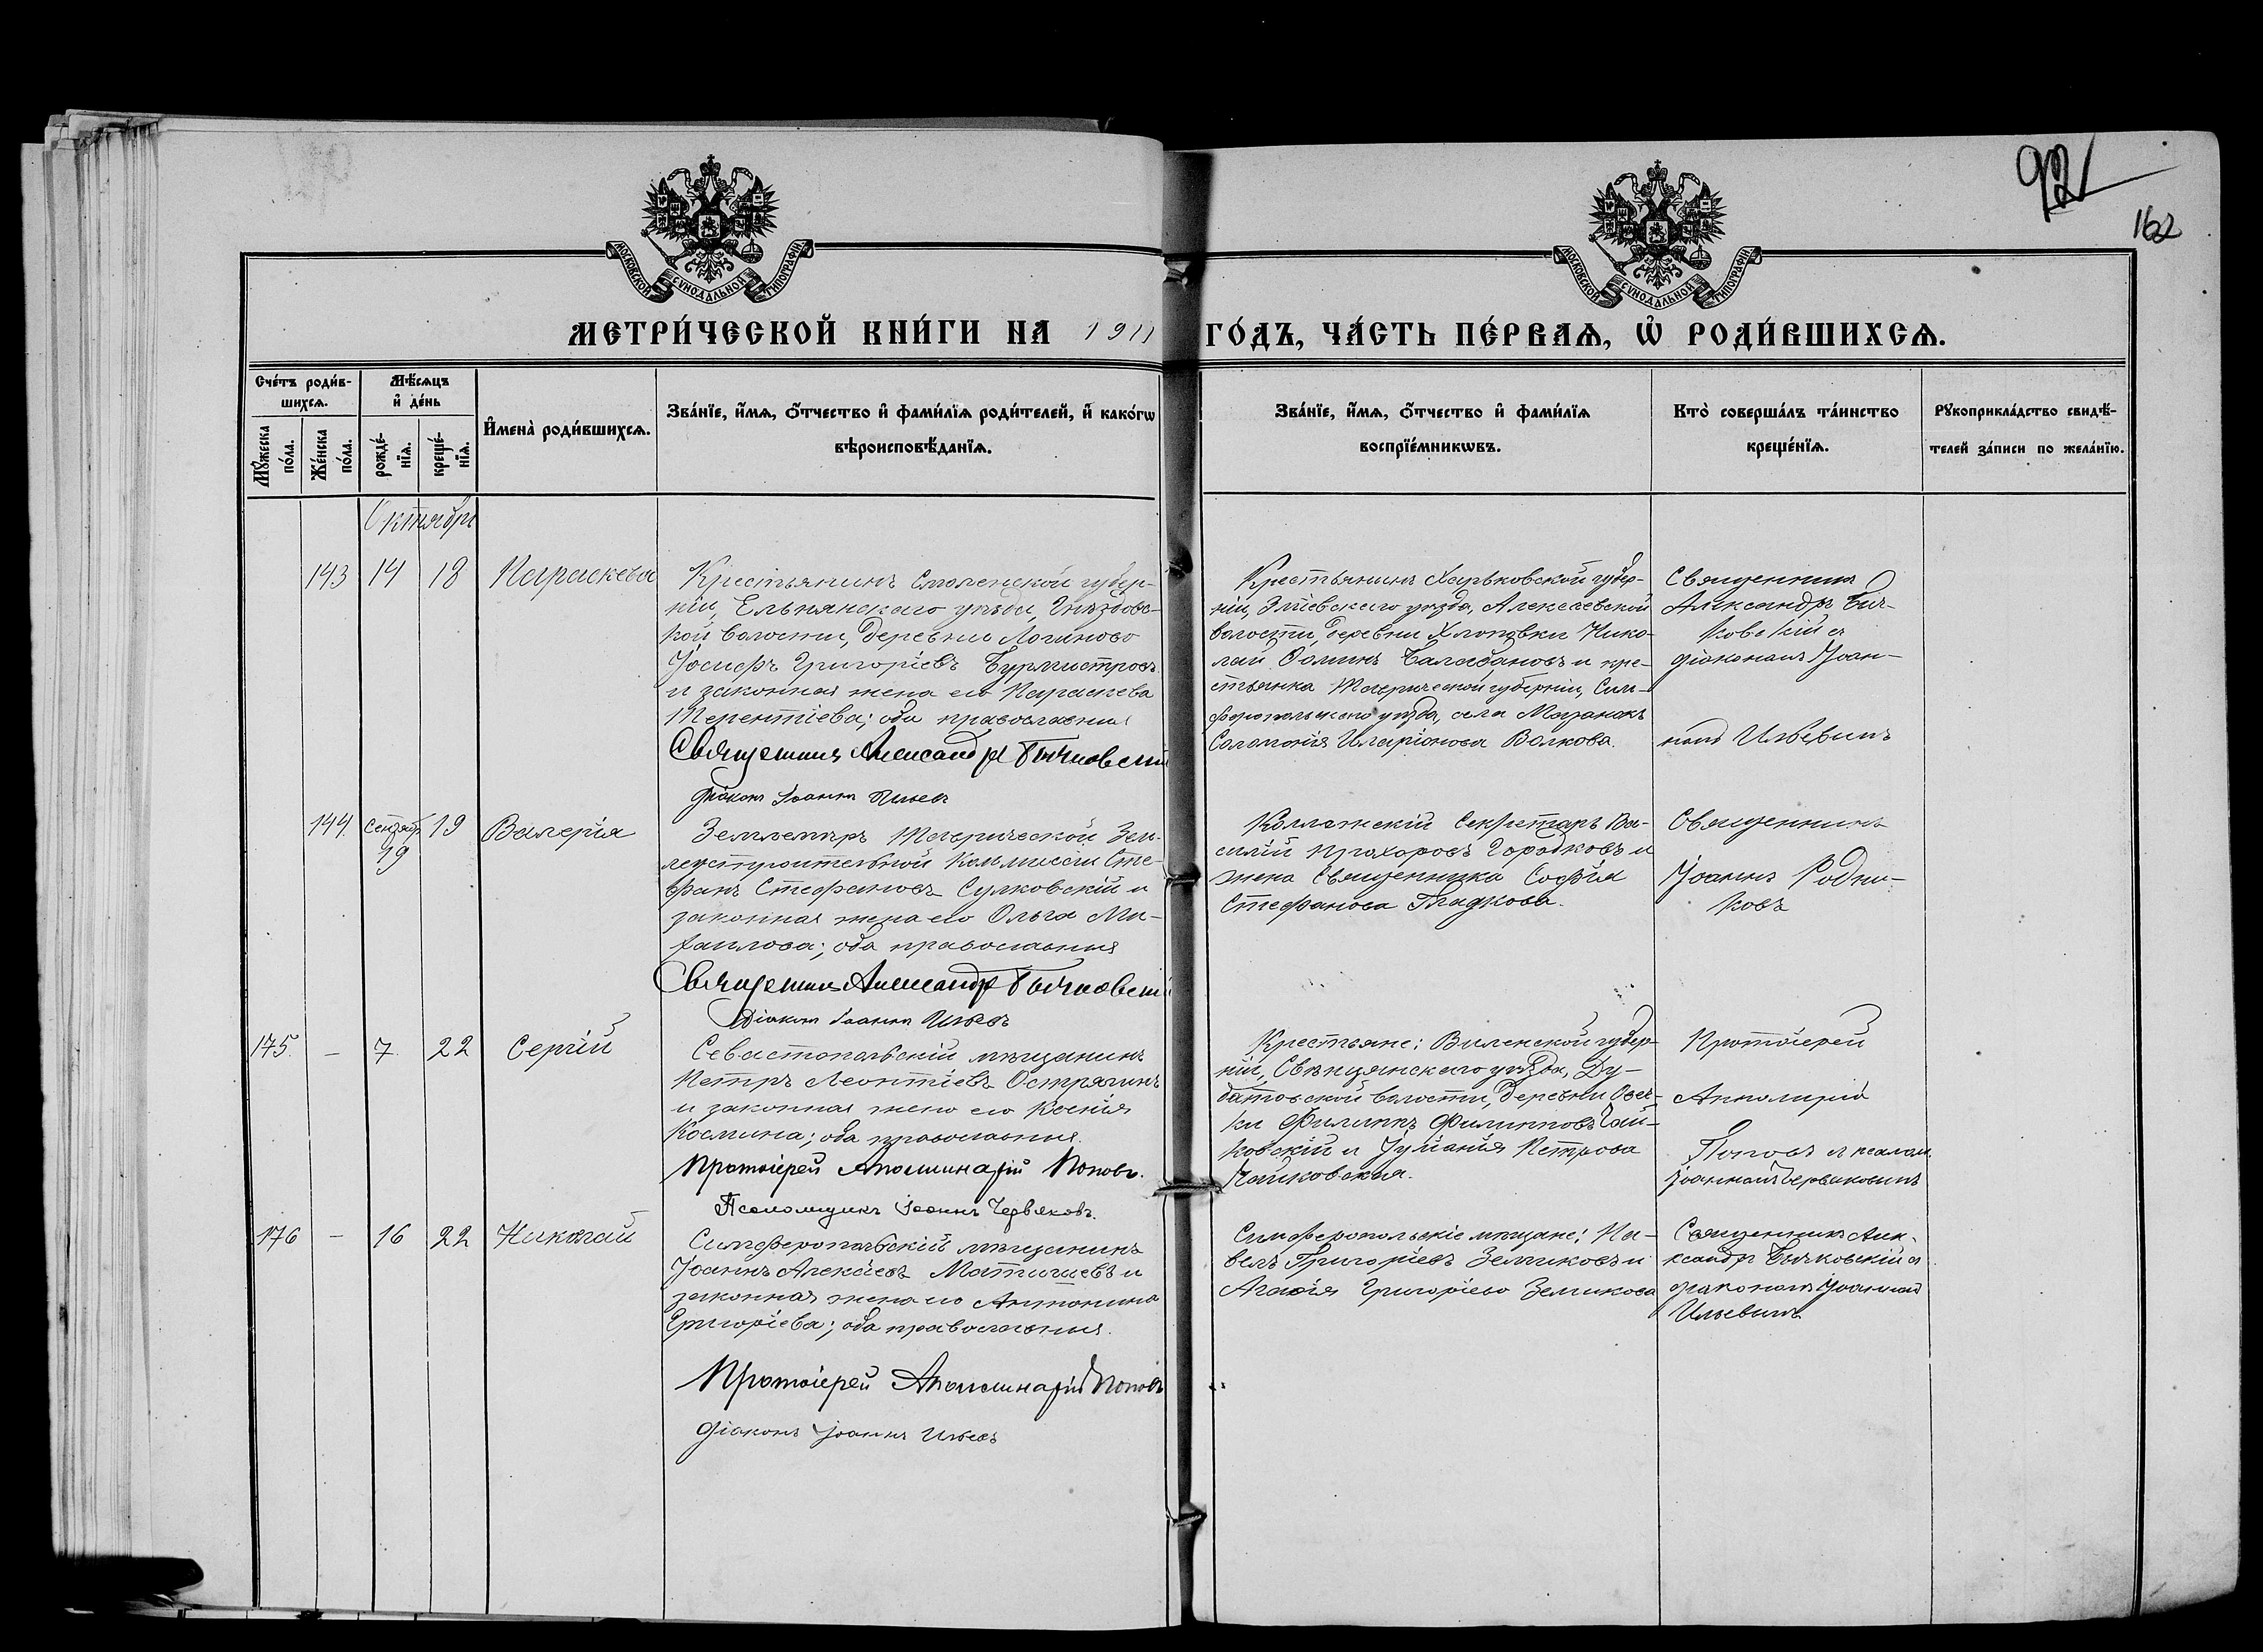 92
162
МОСКОВСКОЙ СѴНОДАЛЬНОЙ ТИПОГРАФІИ
МОСКОВСКОЙ СѴНОДАЛЬНОЙ ТИПОГРАФІИ
МЕТРИ́ЧЕСКОЙ КНИ́ГИ НА 1911 ГО́ДЪ, ЧА́СТЬ ПЕ́РВАѦ, Ѡ҆ РОДИ́ВШИХСѦ.
Сче́тъ роди́в-
шихсѧ.
Мꙋ́жеска
по́ла.
Же́нска
по́ла.
Мѣ́сѧцъ
и҆ де́нь
рожде́-
нїѧ.
креще́-
нїѧ.
И҆мена̀ роди́вшихсѧ.
Зва́нїе, и҆́мѧ, ѻ҆́тчество и҆ фами́лїѧ роди́телей, и҆ како́гѡ
вѣроисповѣ́данїѧ.
Зва́нїе, и҆́мѧ, ѻ҆́тчество и҆ фами́лїѧ
воспрїе́мникѡвъ.
Кто̀ соверша́лъ та́инство
креще́нїѧ.
Рꙋкоприкла́дство свидѣ́-
телей за́писи по жела́нїю.
Октябрь
143 14 18 Параскева
Крестьянинъ Смоленской губер-
ніи, Ельнянскаго уѣзда, Гнѣздовс-
кой волости, деревни Логиново
Іосифъ Григоріевъ Бурмистровъ
и законная жена его Параскева
Терентіева; оба православные
Священникъ Александръ Бычковскій
Діаконъ Іоаннъ Ильевъ
Крестьянинъ Харьковской губер-
ніи, Зміевскаго уѣзда, Алексеевской
волости, деревни Хлоповки Нико-
лай Ѳоминъ Балабановъ и кре-
стьянка Таврической губерніи, Сим-
феропольскаго уѣзда, села Мазанокъ
Соломонія Иларіонова Волкова.
Священникъ
Александръ Быч-
ковскій съ
діакономъ Іоан-
номъ Ильевымъ
144 Сентяб. 19 19 Валерія
Землемѣръ Таврической Зем-
леустроительной Коммиссіи Сте-
фанъ Стефановъ Сулковскій и
законная жена его Ольга Ми-
хаилова; оба православные
Священникъ Александръ Бычковскій
Діаконъ Іоаннъ Ильевъ
Коллежскій Секретарь Ва-
силій Прохоровъ Городковъ и
жена Священника Софія
Стефанова Гладкова.
Священникъ
Іоаннъ Родни-
ковъ
175 — 7 22 Сергій
Севастопольскій мѣщанинъ
Петръ Леонтіевъ Острягинъ
и законная жена его Ксенія
Космина; оба православные.
Протоіерей Аполлинарій Поповъ.
Псаломщикъ Іоаннъ Червяковъ.
Крестьяне: Виленской губер-
ніи, Свѣнцянскаго уѣзда, Ду-
батовской волости, деревни
ки Филиппъ Филипповъ Чай-
ковскій и Іуліанія Петрова
Чайковская.
Протоіерей
Апполинарій
Поповъ и псалом.
Іоанномъ Червяковымъ
176 — 16 22 Николай
Симферопольскій мѣщанинъ
Іоаннъ Алексѣевъ и
законная жена его Антонина
Григоріева; оба православные.
Протоіерей Аполлинарій Поповъ
Діаконъ Іоаннъ Ильевъ
Симферопольскіе мѣщане: Па-
велъ Григоріевъ Земляковъ и
Агаѳія Григоріева Землякова
Священникъ Алек-
сандръ Бычковскій съ
діакономъ Іоанномъ
Ильевымъ